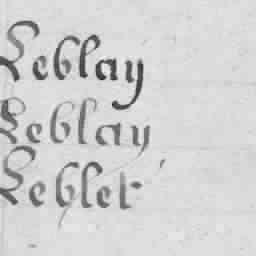 Leblay
Leblay
Leblet